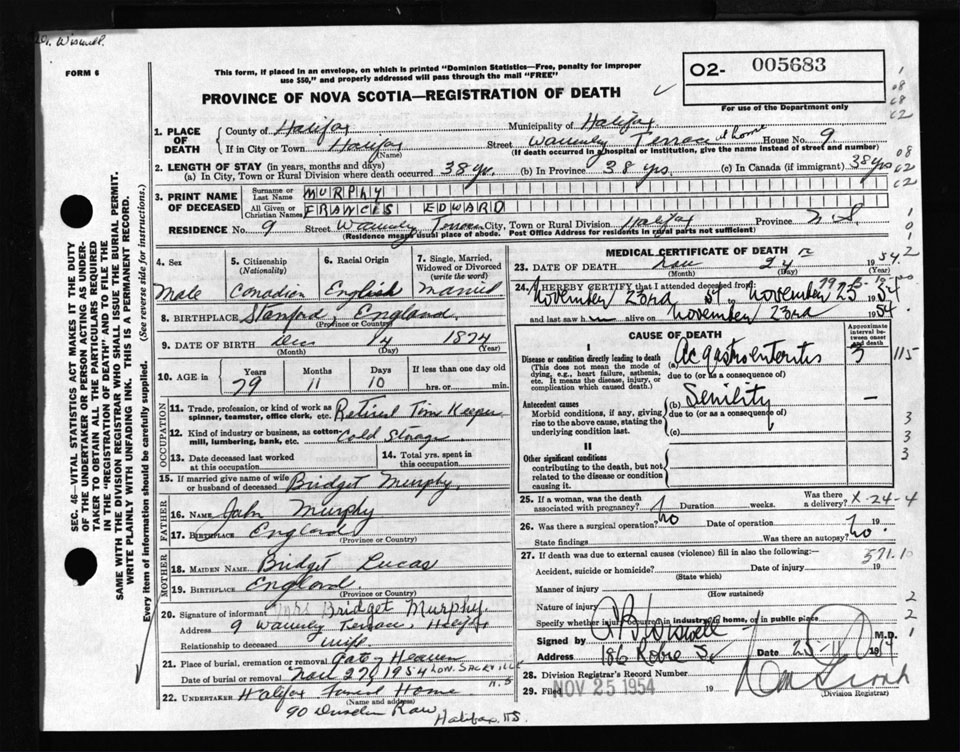 Dr. Wiswell.
FORM 6
This form, if placed in an envelope, on which is printed "Dominion Statistics—Free, penalty for improper
use $50," and properly addressed will pass through the mail "FREE"
O2- 005683
For use of the Department only
PROVINCE OF NOVA SCOTIA—REGISTRATION OF DEATH
1. PLACE OF DEATH
County of Halifax Municipality of Halifax
If in City or Town Halifax (Name) Street Waverly Terrace at home House No. 9
(If death occurred in a hospital or institution, give the name instead of street and number)
2. LENGTH OF STAY (in years, months and days)
(a) In City, Town or Rural Division where death occurred 38 yr. (b) In Province 38 yrs. (c) In Canada (if immigrant) 38 yrs
3. PRINT NAME OF DECEASED
Surname or Last Name MURPHY
All Given or Christian Names FRANCIS EDWARD
RESIDENCE No. 9 Street Waverly Terrace City, Town or Rural Division Halifax Province N.S.
(Residence means usual place of abode. Post Office Address for residents in rural parts not sufficient)
4. Sex
Male
5. Citizenship (Nationality)
Canadian
6. Racial Origin
English
7. Single, Married, Widowed or Divorced (write the word)
Married
8. BIRTHPLACE Stanford, England
(Province or Country)
9. DATE OF BIRTH Dec 14 1874
(Month) (Day) (Year)
10. AGE in
Years 79
Months 11
Days 10
If less than one day old
hrs. or min.
OCCUPATION
11. Trade, profession, or kind of work as spinner, teamster, office clerk, etc. Retired Time Keeper
12. Kind of industry or business, as cotton-mill, lumbering, bank, etc. Cold Storage
13. Date deceased last worked at this occupation
14. Total yrs. spent in this occupation
15. If married give name of wife or husband of deceased Bridget Murphy.
FATHER
16. NAME John Murphy
17. BIRTHPLACE England
(Province or Country)
MOTHER
18. MAIDEN NAME Bridget Lucas
19. BIRTHPLACE England
(Province or Country)
20. Signature of informant Mrs Bridget Murphy.
Address 9 Waverly Terrace, Halifax
Relationship to deceased wife.
21. Place of burial, cremation or removal Gate Heaven
Date of burial or removal Nov 27 1954 Low. Sackville N.S
22. UNDERTAKER Halifax Funeral Home
(Name and address)
90 Row Halifax, NS.
MEDICAL CERTIFICATE OF DEATH
23. DATE OF DEATH Nov 24 1954
(Month) (Day) (Year)
24. I HEREBY CERTIFY that I attended deceased from:
November 23rd 54 to November 25 1954
and last saw h im alive on November 23rd 1954.
CAUSE OF DEATH
Approximate interval between onset and death
I
Disease or condition directly leading to death
(This does not mean the mode of dying, e.g., heart failure, asthenia, etc. It means the disease, injury, or complication which caused death.)
(a) Ac gastroenteritis
due to (or as a consequence of)
Antecedent causes
Morbid conditions, if any, giving rise to the above cause, stating the underlying condition last.
(b) Senility —
due to (or as a consequence of)
(c)
II
Other significant conditions
contributing to the death, but not related to the disease or condition causing it.
25. If a woman, was the death associated with pregnancy? Duration weeks. Was there a delivery?
X-24-4
26. Was there a surgical operation? no Date of operation 19
State findings Was there an autopsy? no.
27. If death was due to external causes (violence) fill in also the following:—
571.10
Accident, suicide or homicide? Date of injury 19
(State which)
Manner of injury
(How sustained)
Nature of injury
Specify whether injury occurred in industry, in home, or in public place
Signed by Wiswell M.D.
Address 186 Robie St Date 25-11 1954
28. Division Registrar's Record Number
29. Filed NOV 25 1954 19
(Division Registrar)
SEC. 46—VITAL STATISTICS ACT MAKES IT THE DUTY
OF THE UNDERTAKER OR PERSON ACTING AS UNDER-
TAKER TO OBTAIN ALL THE PARTICULARS REQUIRED
IN THE "REGISTRATION OF DEATH" AND TO FILE THE
SAME WITH THE DIVISION REGISTRAR WHO SHALL ISSUE THE BURIAL PERMIT.
WRITE PLAINLY WITH UNFADING INK. THIS IS A PERMANENT RECORD.
Every item of information should be carefully supplied. (See reverse side for instructions.)